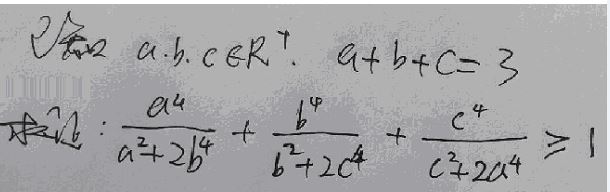 已知 a.b.c∈R⁺. a+b+c=3
求证: a⁴/(a²+2b⁴) + b⁴/(b²+2c⁴) + c⁴/(c²+2a⁴) ≥ 1